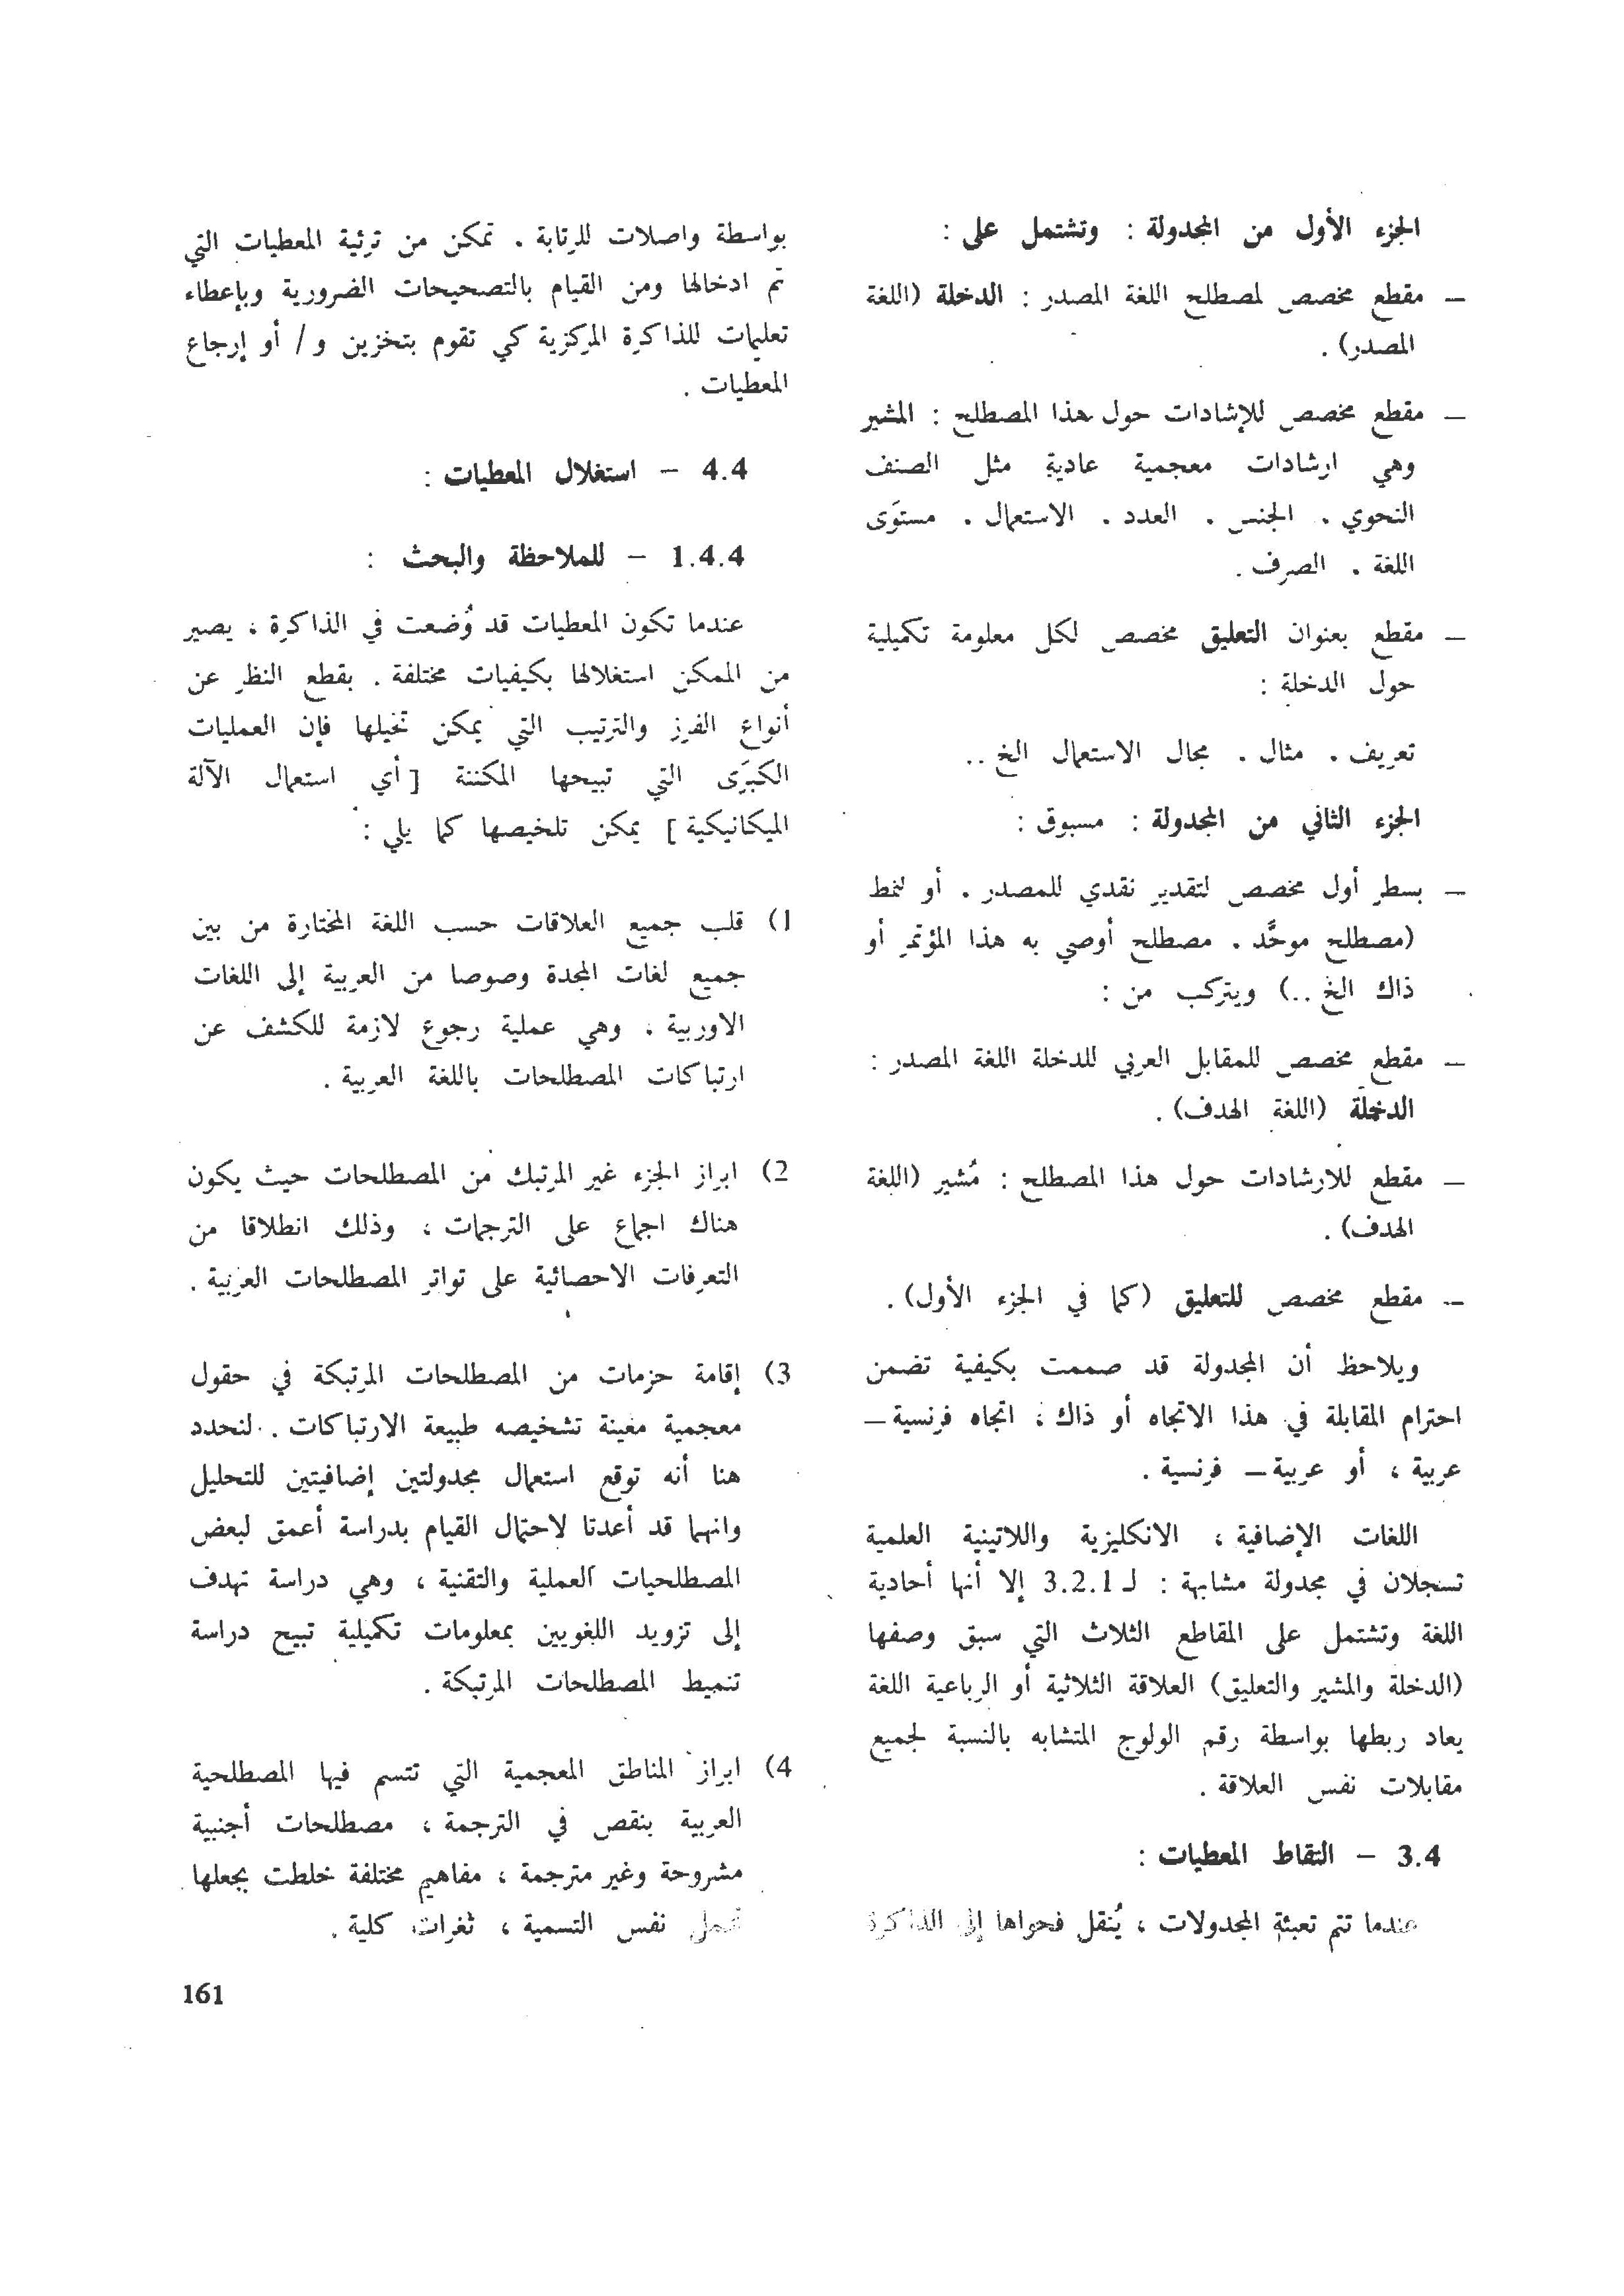 الجزء الأول من المجدولة : وتشتمل على :
– مقطع مخصص لمصطلح اللغة المصدر : الدخلة (اللغة
المصدر) .
– مقطع مخصص للإشادات حول هذا المصطلح : المشير
وهي ارشادات معجمية عادية مثل الصنف
النحوي . الجنس . العدد . الاستعمال . مستوَى
اللغة . الصرف .
– مقطع بعنوان التعليق مخصص لكل معلومة تكميلية
حول الدخلة :
تعريف . مثال . مجال الاستعمال الخ ..
الجزء الثاني من المجدولة : مسبوق :
– بسطر أول مخصص لتقدير نقدي للمصدر . أو لنمط
(مصطلح موحَّد . مصطلح أوصي به هذا المؤتمر أو
ذاك الخ ..) ويتركب من :
– مقطع مخصص للمقابل العربي للدخلة اللغة المصدر :
الدخلة (اللغة الهدف) .
– مقطع للارشادات حول هذا المصطلح : مُشير (اللغة
الهدف) .
– مقطع مخصص للتعليق (كما في الجزء الأول) .
ويلاحظ أن المجدولة قد صممت بكيفية تضمن
احترام المقابلة في هذا الاتجاه أو ذاك ؛ اتجاه فرنسية –
عربية ، أو عربية – فرنسية .
اللغات الإضافية ، الانكليزية واللاتينية العلمية
تسجلان في مجدولة مشابهة : لـ 3.2.1 إلا أنها أحادية
اللغة وتشتمل على المقاطع الثلاث التي سبق وصفها
(الدخلة والمشير والتعليق) العلاقة الثلاثية أو الرباعية اللغة
يعاد ربطها بواسطة رقم الولوج المتشابه بالنسبة لجميع
مقابلات نفس العلاقة .
3.4 – التقاط المعطيات :
عندما تتم تعبئة المجدولات ، يُنقل فحواها إلى الذاكرة
بواسطة واصلات للرتابة . تمكن من ترئية المعطيات التي
تم ادخالها ومن القيام بالتصحيحات الضرورية وبإعطاء
تعليمات للذاكرة المركزية كي تقوم بتخزين و/ أو إرجاع
المعطيات .
4.4 – استغلال المعطيات :
1.4.4 – للملاحظة والبحث :
عندما تكون المعطيات قد وُضعت في الذاكرة ، يصير
من الممكن استغلالها بكيفيات مختلفة . بقطع النظر عن
أنواع الفرز والترتيب التي يمكن تخيلها فإن العمليات
الكبرَى التي تبيحها المكننة [ أي استعمال الآلة
الميكانيكية ] يمكن تلخيصها كما يلي :
1) قلب جميع العلاقات حسب اللغة المختارة من بين
جميع لغات المجدة وصوصا من العربية إلى اللغات
الاوربية . وهي عملية رجوع لازمة للكشف عن
ارتباكات المصطلحات باللغة العربية .
2) ابراز الجزء غير المرتبك من المصطلحات حيث يكون
هناك اجماع على الترجمات ، وذلك انطلاقا من
التعرفات الاحصائية على تواتر المصطلحات العربية .
3) إقامة حزمات من المصطلحات المرتبكة في حقول
معجمية معينة تشخيصه طبيعة الارتباكات . لنحدد
هنا أنه توقع استعمال مجدولتين إضافيتين للتحليل
وانهما قد أعدتا لاحتمال القيام بدراسة أعمق لبعض
المصطلحيات العملية والتقنية ، وهي دراسة تهدف
إلى تزويد اللغويين بمعلومات تكميلية تبيح دراسة
تنميط المصطلحات المرتبكة .
4) ابراز المناطق المعجمية التي تتسم فيها المصطلحية
العربية بنقص في الترجمة ، مصطلحات أجنبية
مشروحة وغير مترجمة ، مفاهيم مختلفة خلطت بجعلها
تحمل نفس التسمية ، ثغرات كلية .
161